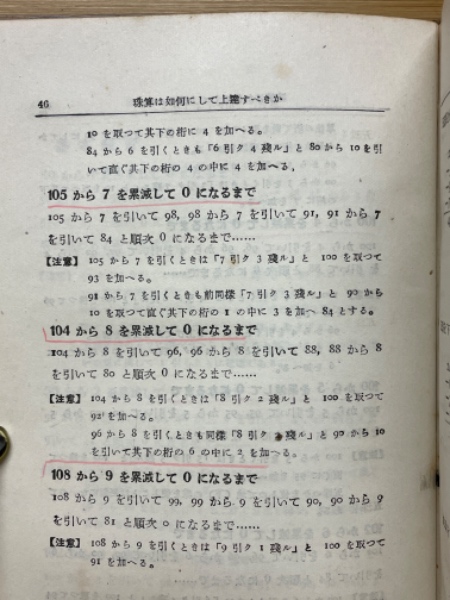 46
珠算は如何にして上達すべきか
10 を取つて其下の桁に 4 を加へる。
84 から 6 を引くときも「6 引ク 4 殘ル」と 80 から 10 を引
いて直ぐ其下の桁の 4 の中に 4 を加へる,
105 から 7 を累減して 0 になるまで
105 から 7 を引いて 98, 98 から 7 を引いて 91, 91 から 7
を引いて 84 と順次 0 になるまで……
【注意】 105 から 7 を引くときは「7 引ク 3 殘ル」と 100 を取つて
93 を加へる。
91 から 7 を引くときも前同樣「7 引ク 3 殘ル」と 90 から
10 を取つて直ぐ其下の桁の 1 の中に 3 を加へ 84 とする。
104 から 8 を累減して 0 になるまで
104 から 8 を引いて 96, 96 から 8 を引いて 88, 88 から 8
を引いて 80 と順次 0 になるまで……
【注意】 104 から 8 を引くときは「8 引ク 2 殘ル」と 100 を取つて
92 を加へる。
96 から 8 を引くときも同樣「8 引ク 殘ル」と 90 から 10
を引いて其下の桁の 6 の中に 2 を加へる。
108 から 9 を累減して 0 になるまで
108 から 9 を引いて 99, 99 から 9 を引いて 90, 90 から 9
を引いて 81 と順次 0 になるまで……
【注意】 108 から 9 を引くときは「9 引ク 1 殘ル」と 100 を取つて
91 を加へる。